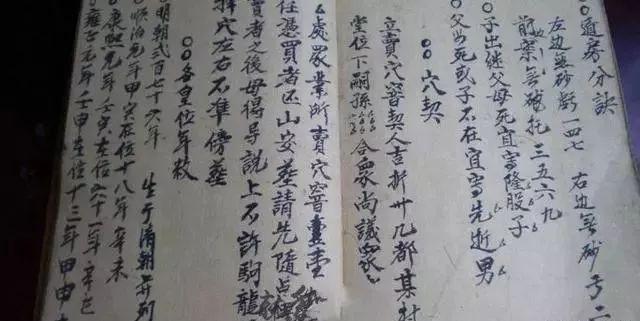 〇〇通考分訣
左边無砂虧一四七 右边無砂亏二
前案無砵托三五六九
〇子出继父母死宜寫隆股子
〇父当死或子不在宜寫先逝男
〇〇穴契
立賣穴窨契人吉折卅几都某村
堂位下嗣孫合衆尚議衆
處衆業断賣穴窨壹堂
任憑買者迁山安葬請先隨点
賣者之後毋得异説上不許駒龍
择穴左右不準傍葬
〇〇各皇位年数
明朝弍百七十六年 生于清朝
順治元年甲申在位十八年辛未
康熙元年壬寅在位六十一年
雍正元年壬申在位十三年甲申